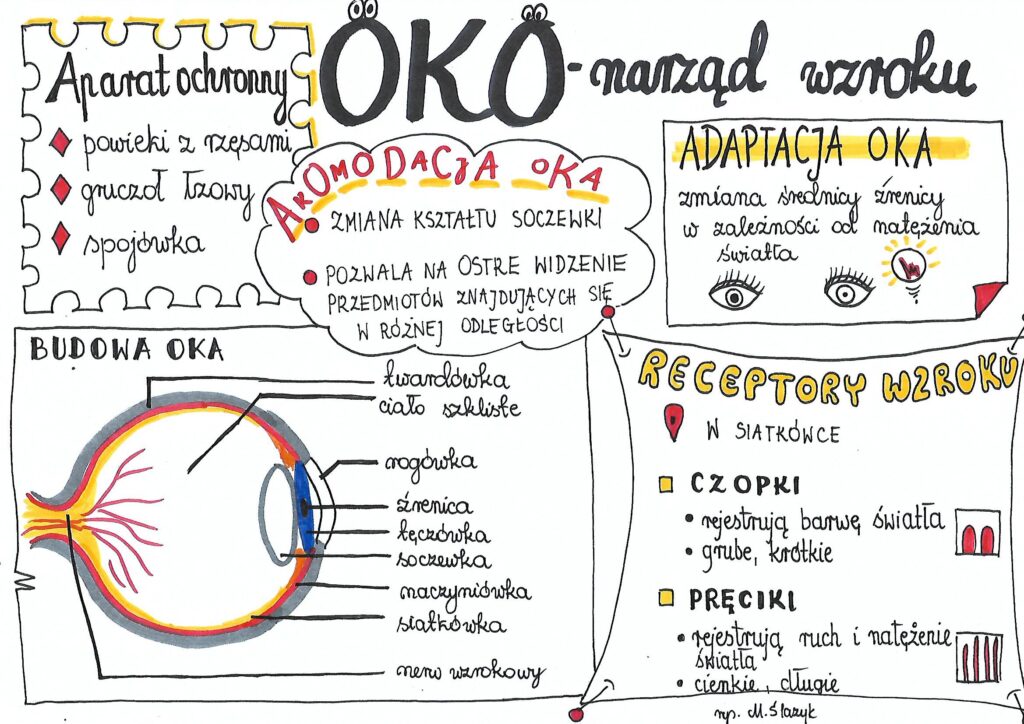 OKO - narząd wzroku
Aparat ochronny
powieki z rzęsami
gruczoł łzowy
spojówka
AKOMODACJA OKA
ZMIANA KSZTAŁTU SOCZEWKI
POZWALA NA OSTRE WIDZENIE
PRZEDMIOTÓW ZNAJDUJĄCYCH SIĘ
W RÓŻNEJ ODLEGŁOŚCI
ADAPTACJA OKA
zmiana średnicy źrenicy
w zależności od natężenia
światła
BUDOWA OKA
twardówka
ciało szkliste
rogówka
źrenica
tęczówka
soczewka
naczyniówka
siatkówka
nerw wzrokowy
RECEPTORY WZROKU
W SIATKÓWCE
CZOPKI
rejestrują barwę światła
grube, krótkie
PRĘCIKI
rejestrują ruch i natężenie
światła
cienkie, długie
rys. M. Ślazyk